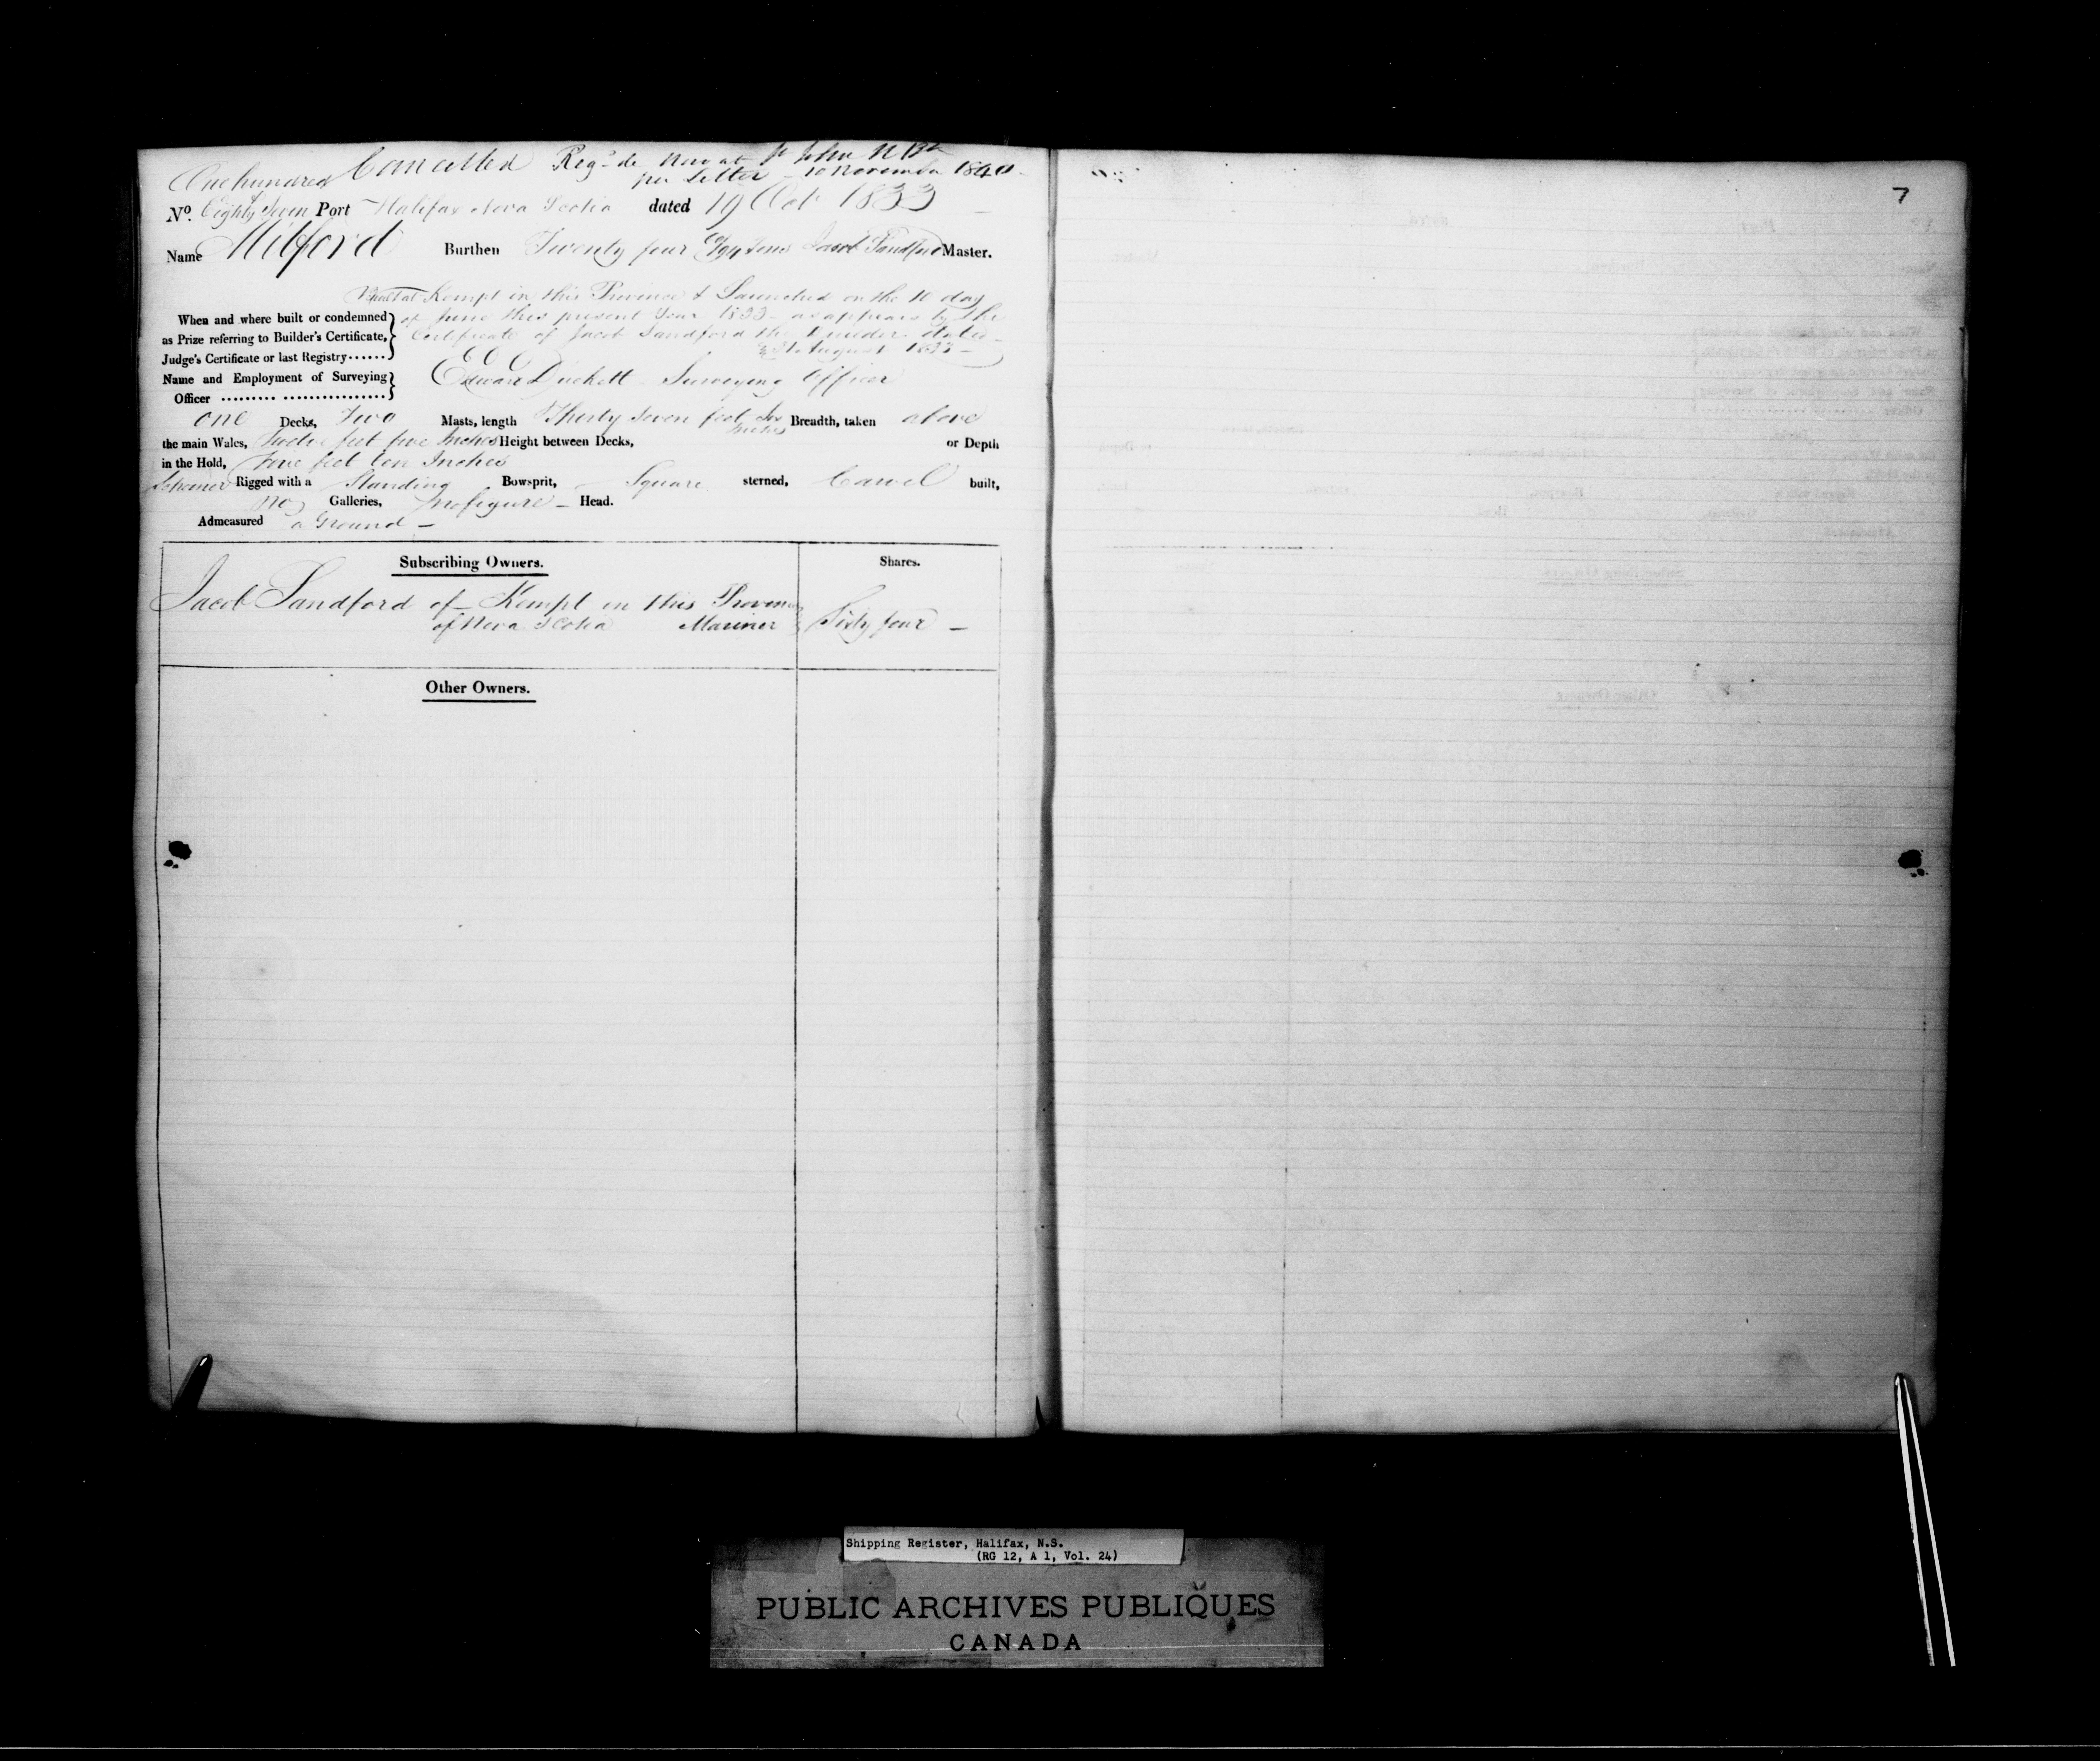 Cancelled Reg'd de novo at St John N Bk
One hundred per Letter 10 November 1840
No. Eighty Seven Port Halifax Nova Scotia dated 19 Oct 1833
Name Milford Burthen Twenty four Tons Jacob Sandford Master.
Built at Kempt in this Province & Launched on the 10 day
When and where built or condemned of June this present Year 1833 as appears by the
as Prize referring to Builder's Certificate, Certificate of Jacob Sandford the Builder dated
Judge's Certificate or last Registry...... August 1833
Name and Employment of Surveying Edward Duckett Surveying Officer
Officer ......... ................
One Decks, Two Masts, length Thirty Seven feet Six Inches Breadth, taken above
the main Wales, Twelve feet five Inches Height between Decks, or Depth
in the Hold, feet ten Inches
Schooner Rigged with a Standing Bowsprit, Square sterned, Carvel built,
no Galleries, no figure Head.
Admeasured a Ground
Subscribing Owners. Shares.
Jacob Sandford of Kempt in this Province
of Nova Scotia Mariner Sixty four
Other Owners.
7
Shipping Register, Halifax, N.S.
(RG 12, A 1, Vol. 24)
PUBLIC ARCHIVES PUBLIQUES
CANADA